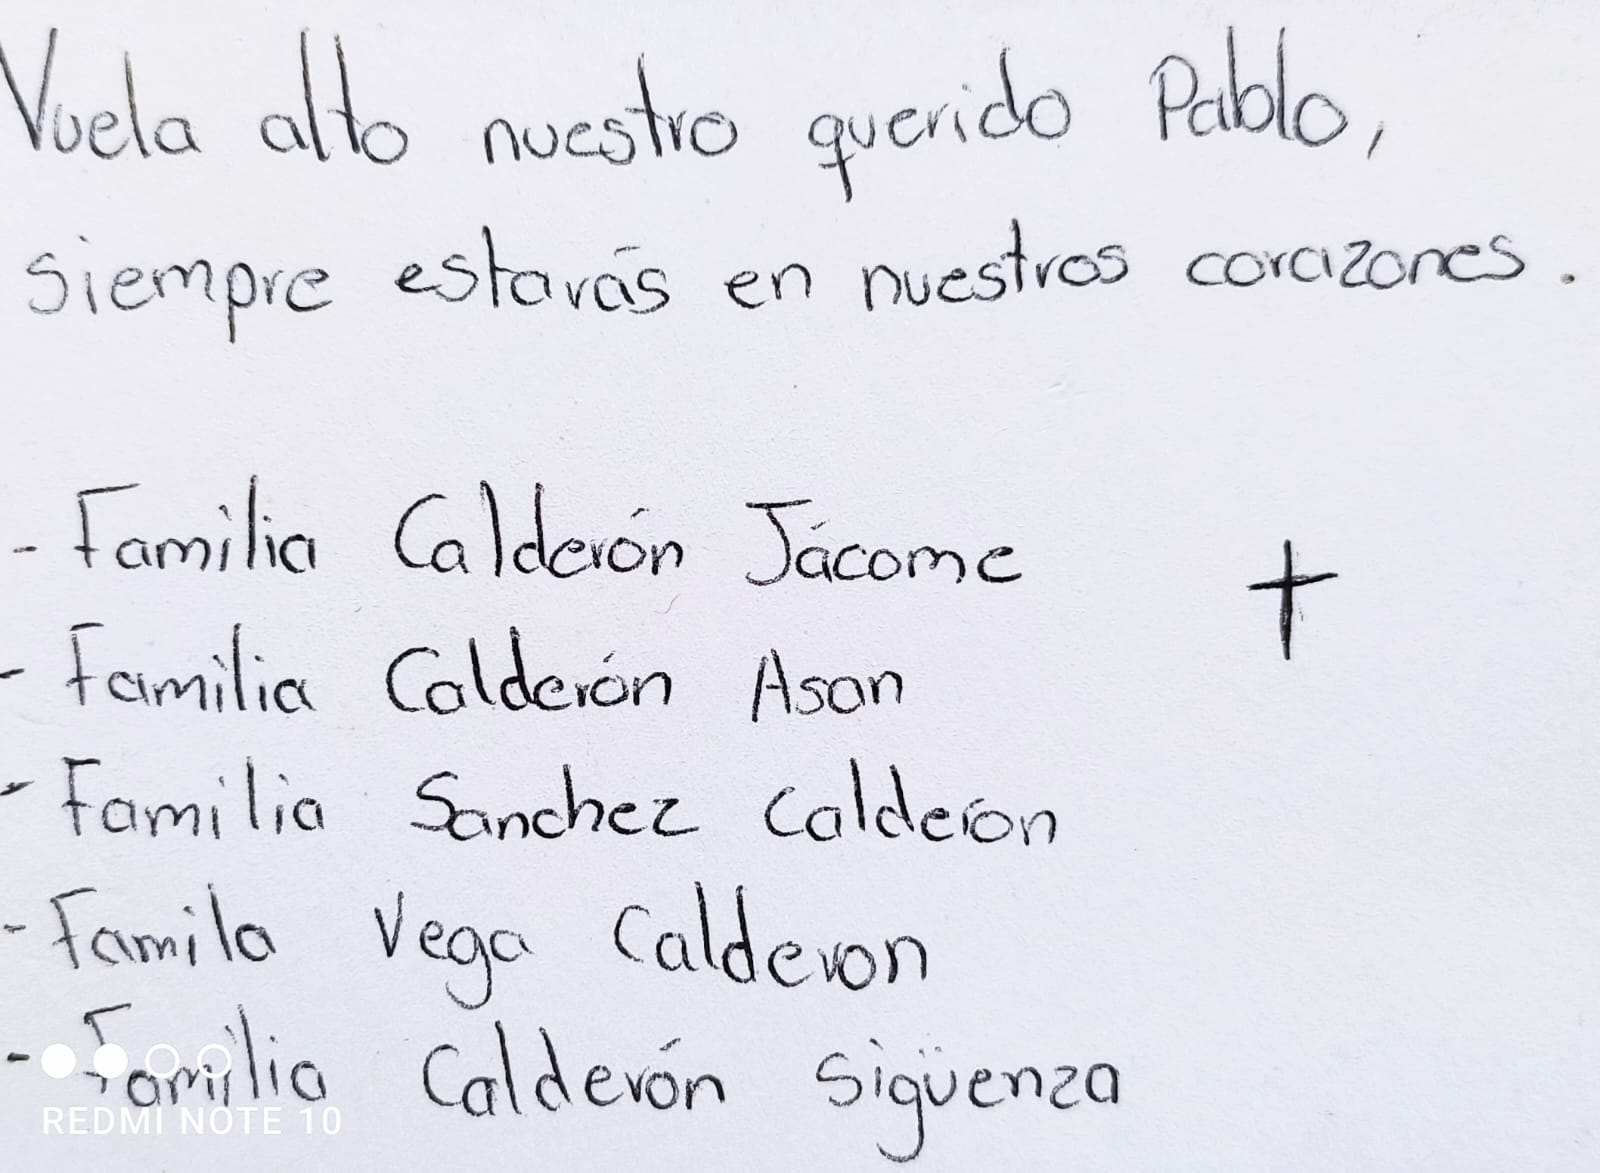 Vuela alto nuestro querido Pablo,
siempre estarás en nuestros corazones.
- Familia Calderón Jácome
- Familia Calderón Asan
- Familia Sanchez Calderon
- Famila Vega Calderon
- Familia Calderón Sigüenza
REDMI NOTE 10